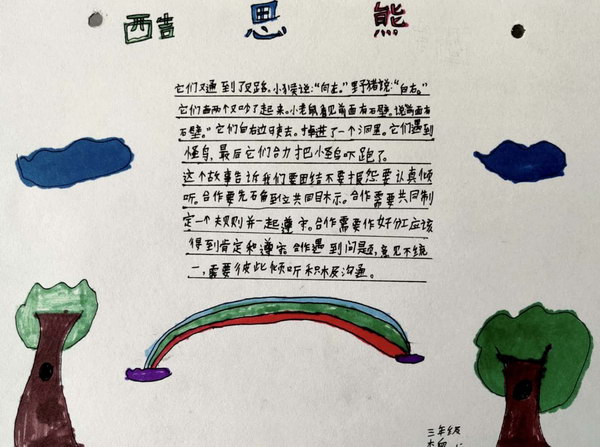 酷思熊
它们又通到了叉路。小猴说:“向左。”野猪说:“向右。”
它们两个又吵了起来。小老鼠看见前面有石壁。说前面有
石壁。”它们向右边走去。掉进了一个洞里。它们遇到
怪鸟,最后它们合力把小怪鸟吓跑了。
这个故事告诉我们要团结不要报怨要认真倾
听。合作要先石角到立共同目木示。合作需要共同制
定一个规则并一起遵守。合作需要作好分工应该
得到肯定和遵守。合作遇到问题,意见不统
一,需要彼此倾听积木及沟通。
三年级